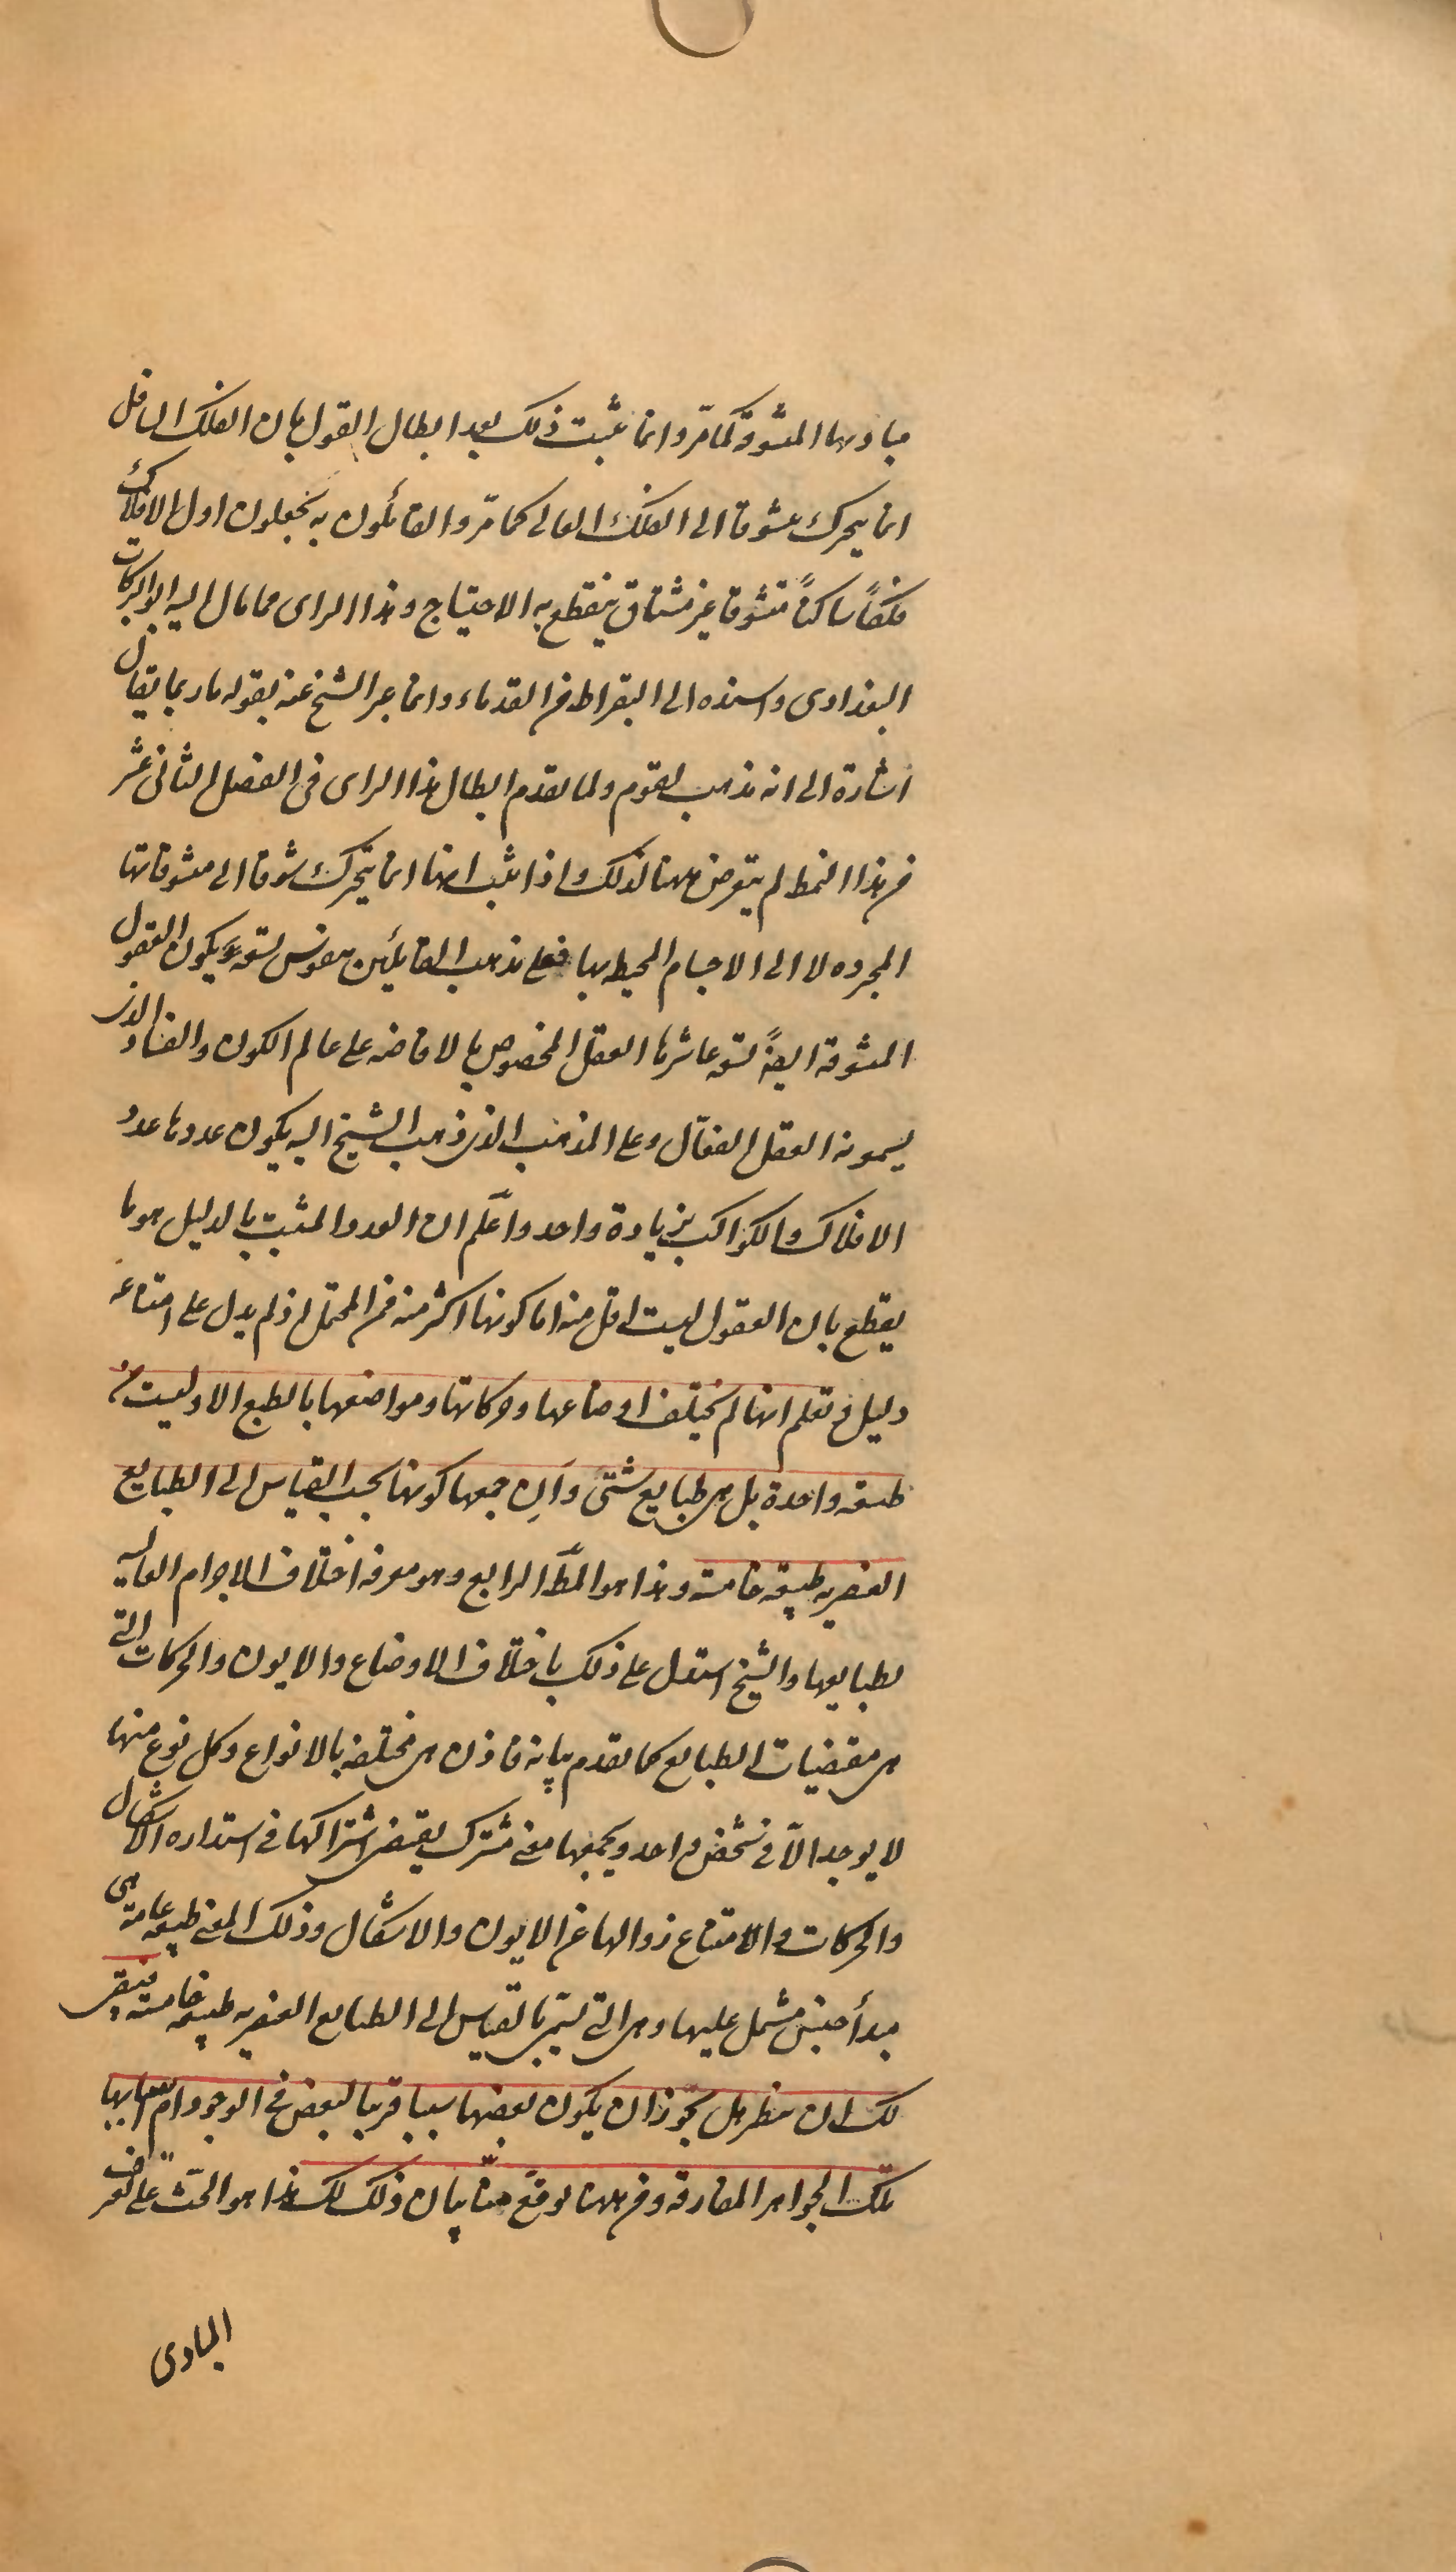 مباديها المتشوقة كما مرّ وانما يثبت ذلك بعد ابطال القول بان الفلك السافل
انما يتحرك متشوقا الى الفلك العالى كما مرّ والقائلون به يجعلون اول الافلاك
فلكاً ساكناً متشوقا غير مشتاق ينقطع به الاحتياج وهذا الراى مما مال اليه ابو البركات
البغدادى واسنده الى البقراط من القدماء وانما عبر الشيخ عنه بقوله ما ربما يقال
اشارة الى انه مذهب لقوم ولما تقدم ابطال هذا الراى فى الفصل الثانى عشر
من هذا النمط لم يتعرض ههنا لذلك واذا ثبت انها انما يتحرك شوقا الى متشوقاتها
المجرده لا الى الاجسام المحيط بها فعلى مذهب القائلين بنفوس تسعة يكون العقول
المتشوقة ايضاً تسعة عاشرها العقل المخصوص بالافاضه على عالم الكون والفساد الذى
يسمونه العقل الفعّال وعلى المذهب الذى ذهب الشيخ اليه يكون عددها عدد
الافلاك والكواكب بزيادة واحد واعلم ان العدد المثبت بالدليل هو ما
يقطع بان العقول ليست اقل منه اما كونها اكثر منه فمن المحتمل اذ لم يدل على امتناعه
دليل فتعلم انها لم تختلف اوضاعها وحركاتها ومواضعها بالطبع الا وليست من
طبيعه واحدة بل هى طبايع شتى وان جمعها كونها بحسب القياس الى الطبايع
العنصريه طبيعه خامسة وهذا هو المط الرابع وهو معرفه اختلاف الاجرام العاليه
بطبايعها والشيخ استدل على ذلك باختلاف الاوضاع والايون والحركات التى
هى مقتضيات الطبايع كما تقدم بيانه فاذن هى مختلفه بالانواع وكل نوع منها
لا يوجد الّا فى شخص واحد ويجمعها معنى مشترك يقتضى اشتراكها فى استداره الاشكال
والحركات والامتناع زوالها عن الايون والاشكال وذلك المعنى طبيعه عامة هى
مبدأ جنس مشتمل عليها وهى التى يسمّى بالقياس الى الطبايع العنصريه طبيعه خامسة فيبقى
لك ان تنظر هل يجوز ان يكون بعضها سببا قريبا لبعض فى الوجود ام اسبابها
تلك الجواهر المفارقه ومن ههنا يوقع منّا بيان ذلك لك هذا هو الحثّ على تعرف
المبادى